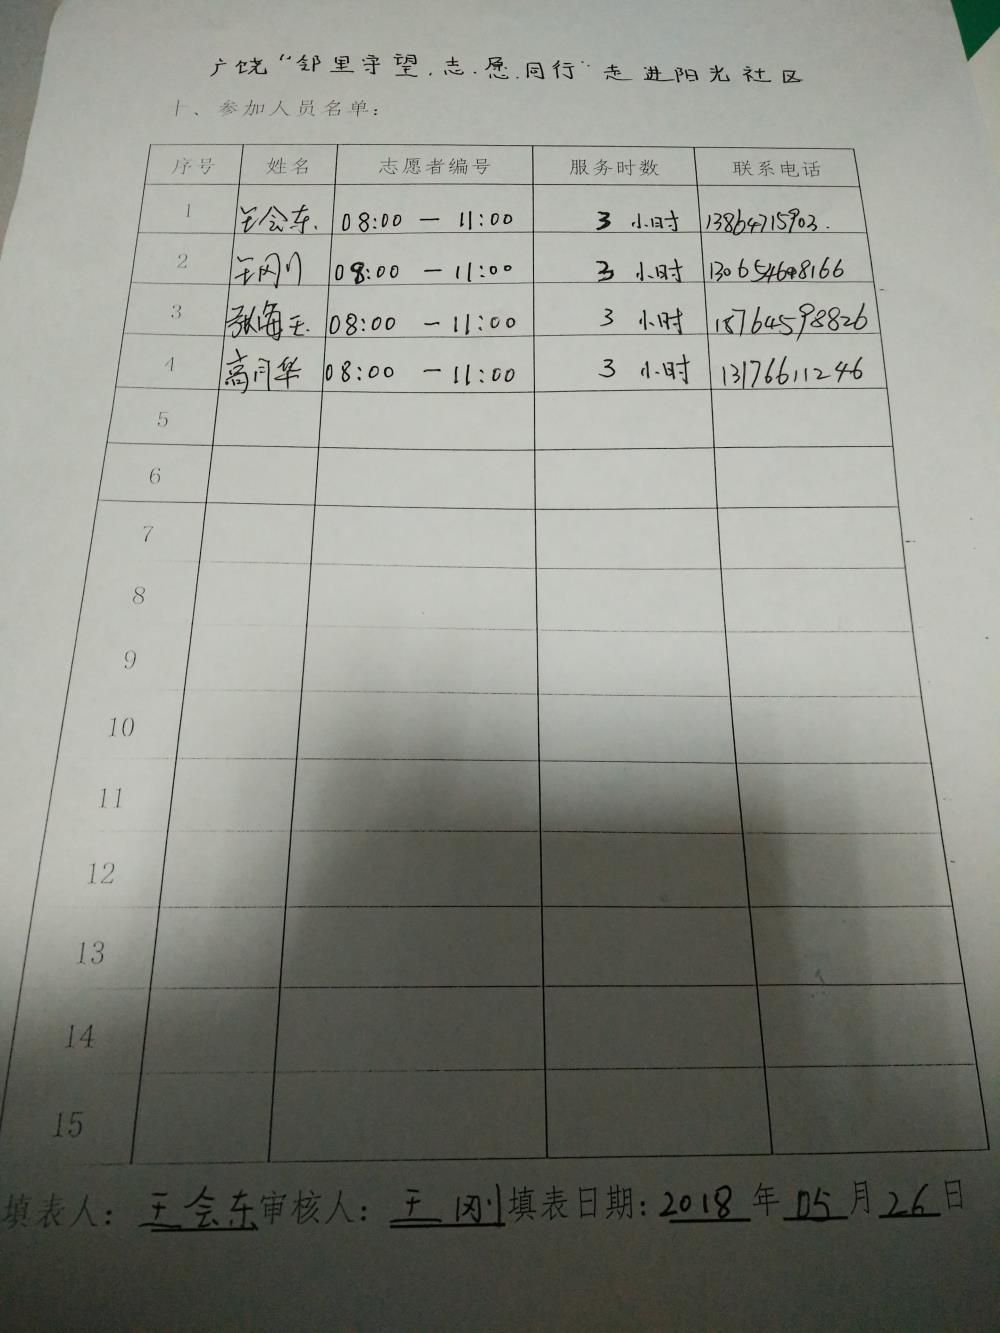 广饶“邻里守望.志.愿.同行”走进阳光社区
十、参加人员名单：
序号 姓名 志愿者编号 服务时数 联系电话
1 王会东. 08:00 — 11:00 3 小时 13864715903.
2 王刚 08:00 — 11:00 3 小时 13065468166
3 张海玉. 08:00 — 11:00 3 小时 18764598826
4 高月华 08:00 — 11:00 3 小时 13176611246
5
6
7
8
9
10
11
12
13
14
15
填表人：王会东审核人：王刚填表日期：2018年05月26日